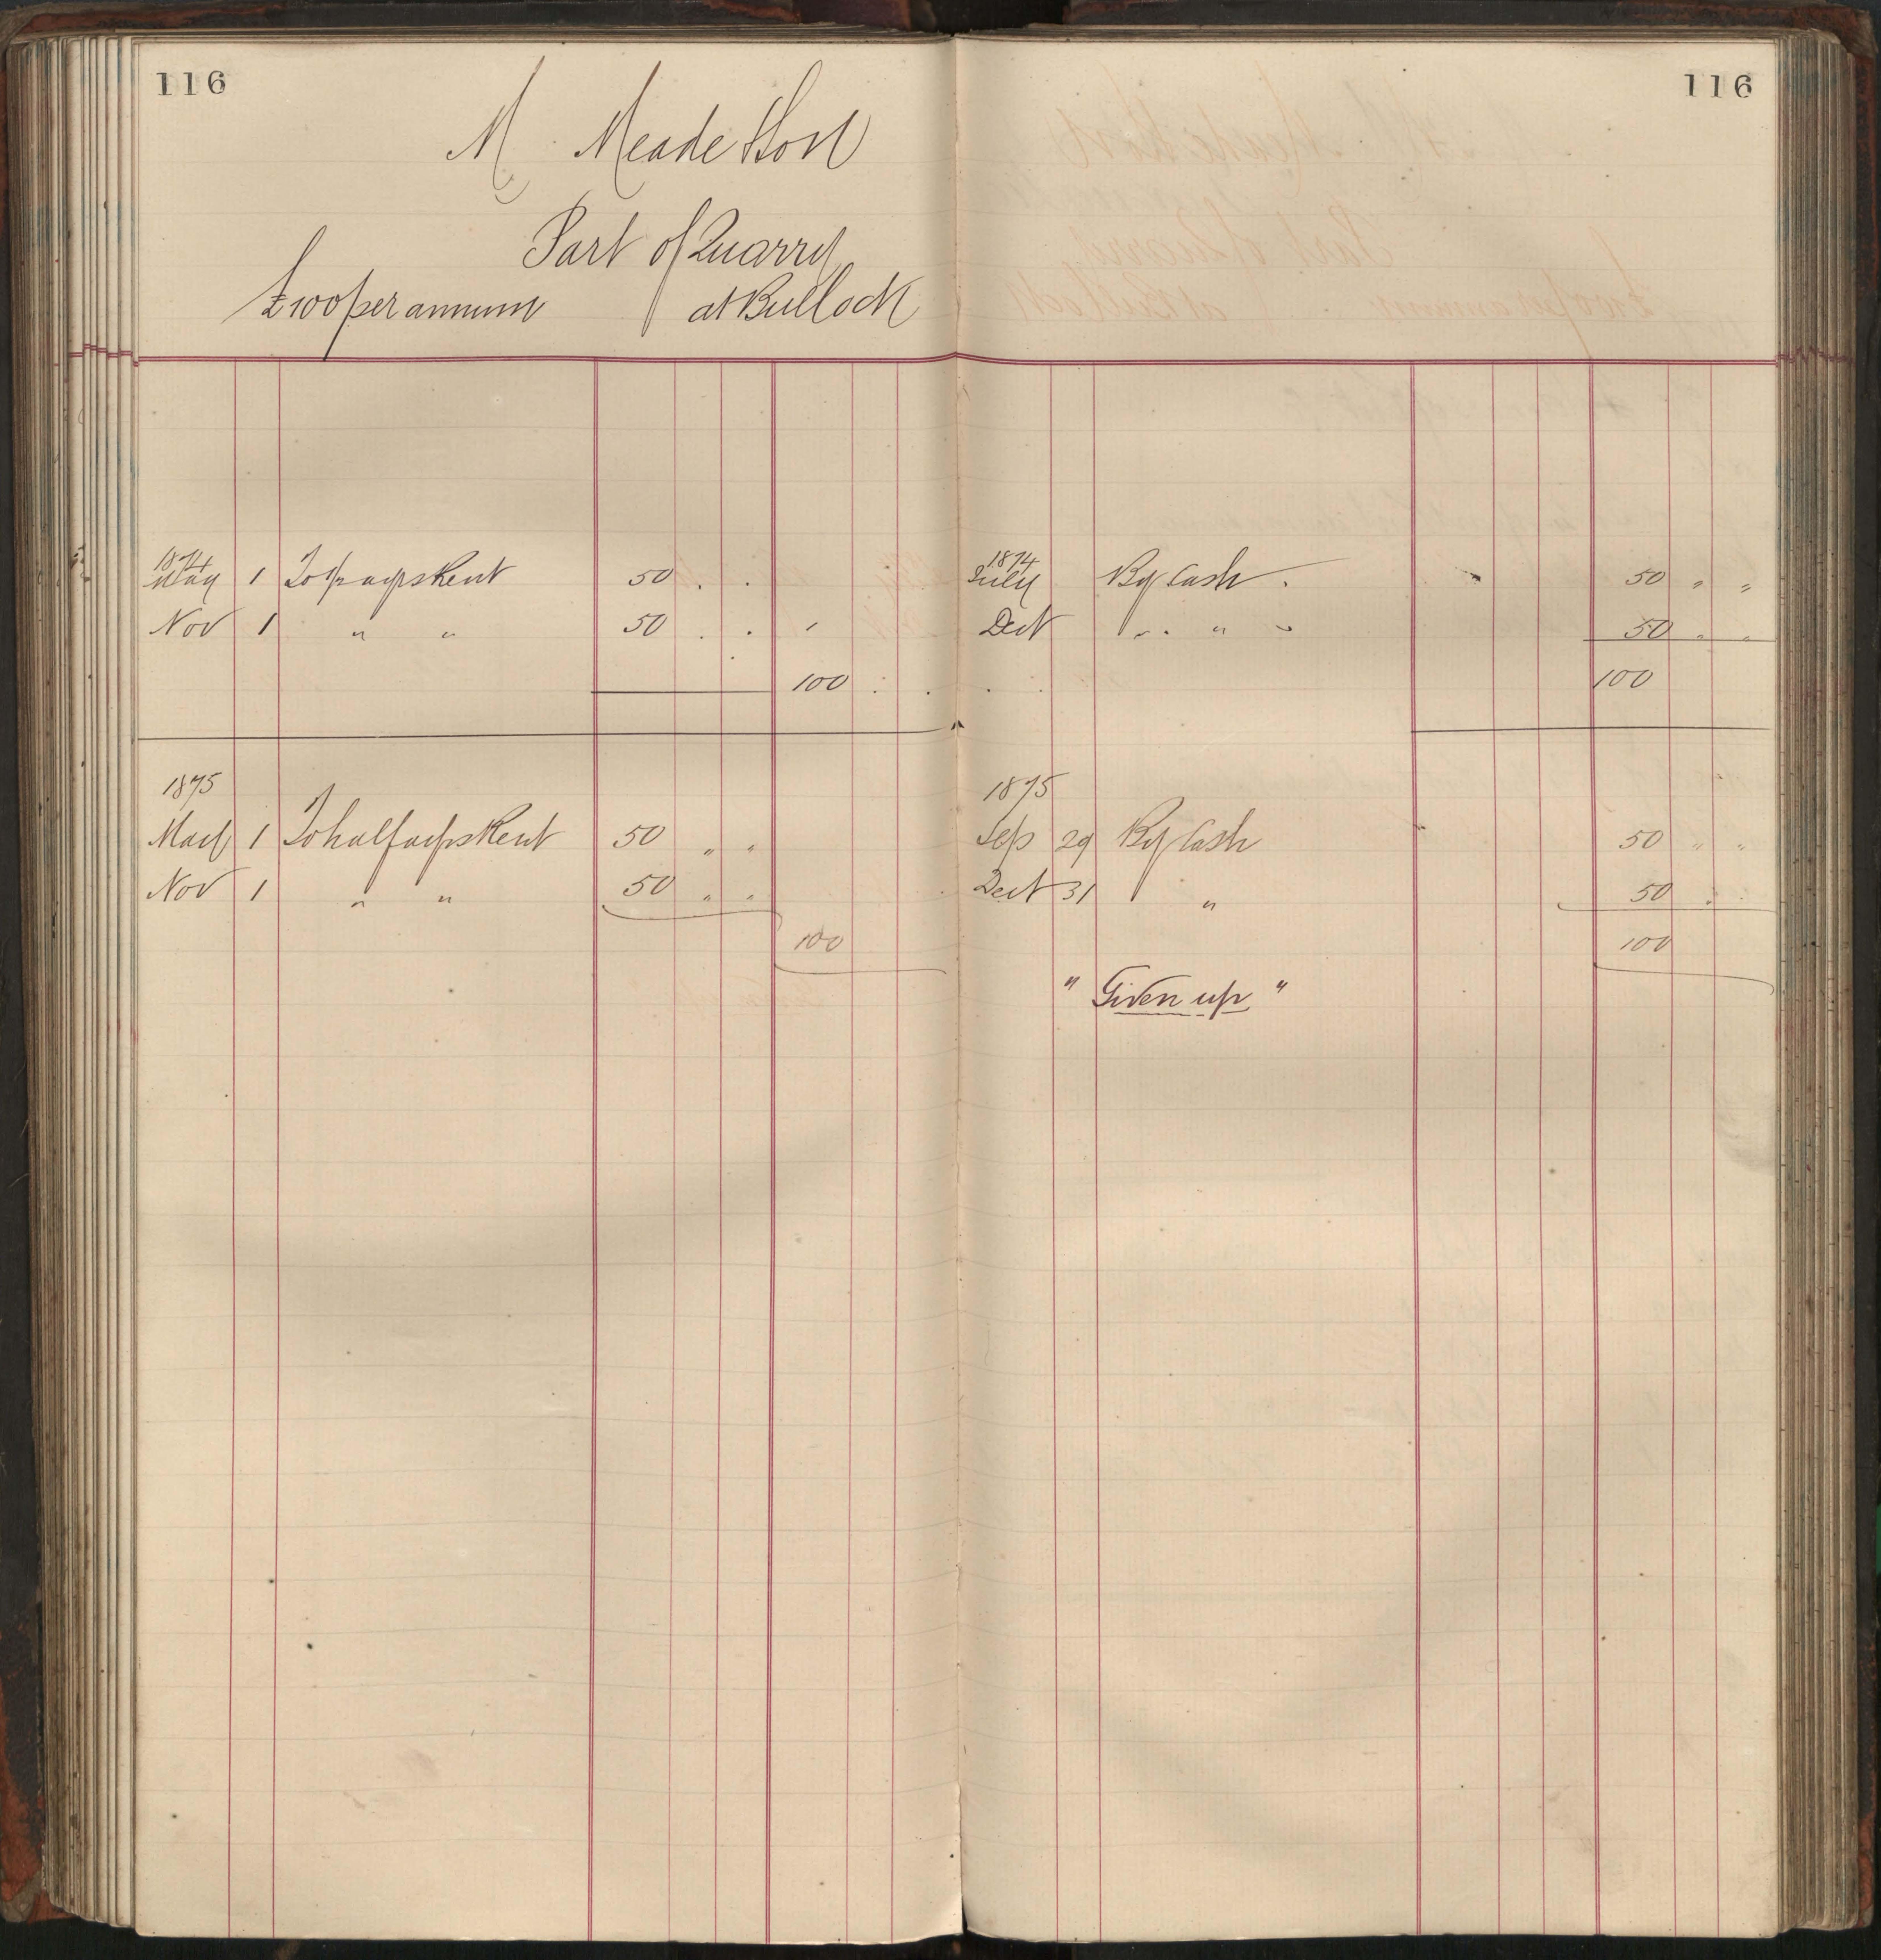 116
M Meade & Son
Part of Quarry
£100 per annum at Bullock
1874
May 1 To ½ ayrs Rent 50 . .
Nov 1 " " 50 . .
100 . .
1875
May 1 To half ayrs Rent 50 " "
Nov 1 " " 50 " "
100
116
1874
July By Cash . 50 " "
Dec " " 50 " "
100
1875
Sep 29 By Cash 50 " "
Dec 31 " 50 . .
100
" Given up "